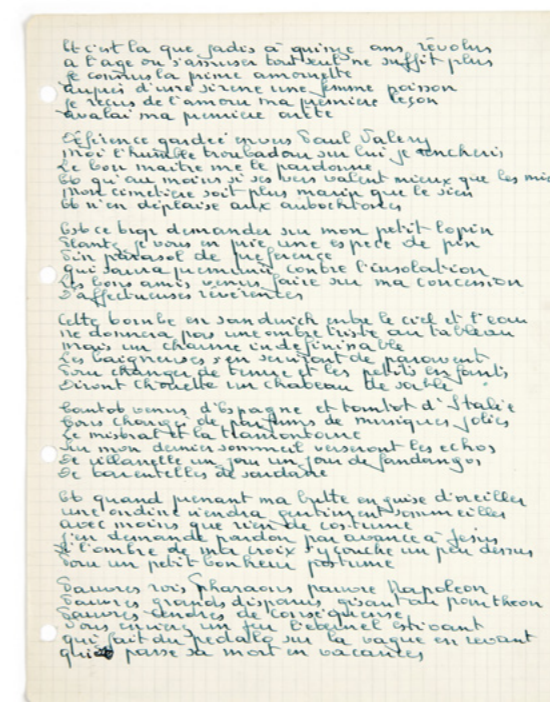 Et c'est la que jadis à quinze ans révolus
a l'age ou s'amuser tout seul ne suffit plus
je connus la prime amourette
auprès d'une sirene une femme poisson
je reçus de l'amour ma première leçon
avalai ma premiere arète
Déférence gardée envers Paul Valery
moi l'humble troubadour sur lui je renchéris
Le bon maitre me le pardonne
Et qu'au moins si ses vers valent mieux que les miens
mon cimetière soit plus marin que le sien
Et n'en déplaise aux autochtones
Est ce trop demander sur mon petit lopin
Plantez je vous en prie une espece de pin
Pin parasol de préférence
Qui saura prémunir contre l'insolation
Les bons amis venus faire sur ma concession
D'affectueuses révérences
Cette tombe en sandwich entre le ciel et l'eau
ne donnera pas une ombre triste au tableau
mais un charme indefinissable
Les baigneuses s'en serviront de paravent
Pour changer de tenue et les petits enfants
Diront Chouette un chateau de sable
Tantot venus d'Espagne et tantot d'Italie
Tous chargés de parfums de musiques jolies
Le mistral et la tramontane
Sur mon dernier sommeil verseront les echos
De villanelle un jour un jour de fandangos
De tarentelles de sardane
Et quand prenant ma butte en guise d'oreiller
une ondine viendra gentiment sommeiller
avec moins que rien de costume
J'en demande pardon par avance à Jésus
Si l'ombre de ma croix s'y couche un peu dessus
Pour un petit bonheur postume
Pauvres rois Pharaons pauvre Napoleon
Pauvres Grands disparus gisant au pantheon
Pauvres cendres de conséquence
Vous envierez un peu l'éternel estivant
qui fait du pédalo sur la vague en revant
qui passe sa mort en vacances